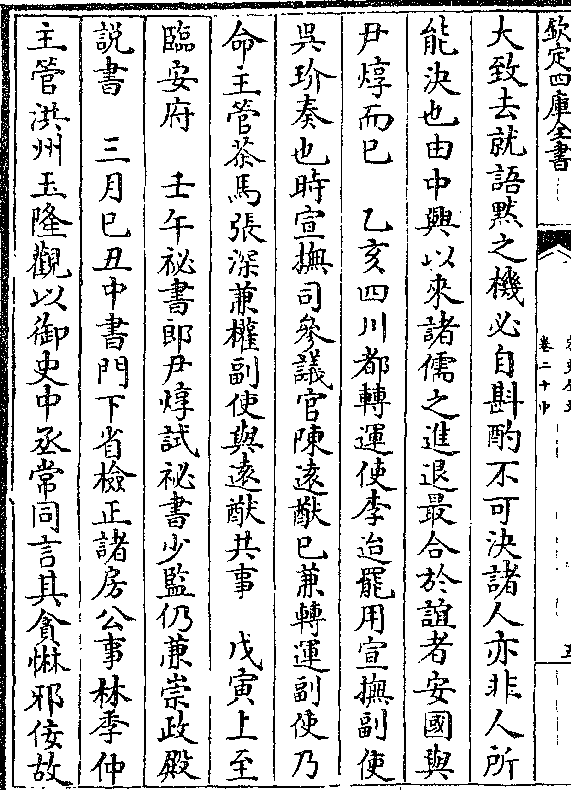 欽定四庫全書
卷二十中
大致去就語黙之機必自斟酌不可決諸人亦非人所
能決也由中興以來諸儒之進退最合於誼者安國與
尹焞而已　乙亥四川都轉運使李迨罷用宣撫副使
吳玠奏也時宣撫司參議官陳遠猷已兼轉運副使乃
命主管茶馬張深兼權副使與遠猷共事　戊寅上至
臨安府　壬午祕書郎尹焞試祕書少監仍兼崇政殿
説書　三月巳丑中書門下省檢正諸房公事林季仲
主管洪州玉隆觀以御史中丞常同言其貪惏邪佞故